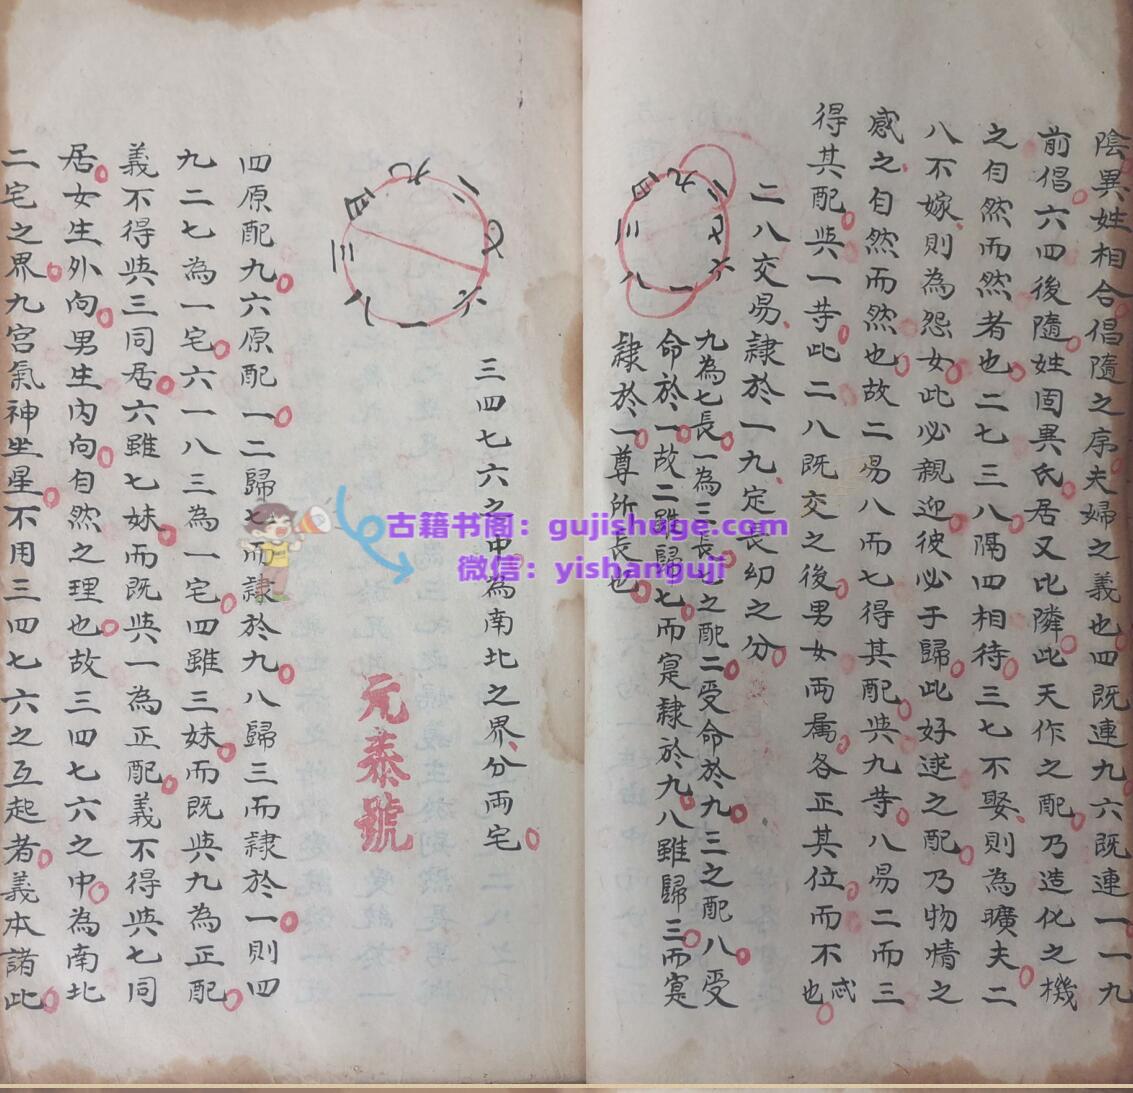 陰異姓相合倡隨之序夫婦之義也四既連九六既連一一九
前倡六四後隨姓固異氏居又比隣此天作之配乃造化之機
之自然而然者也二七三八隔四相待三七不娶則為曠夫二
八不嫁則為怨女此必親迎彼必于歸此好逑之配乃物情之
感之自然而然也故二易八而七得其配與九䒭八易二而三
得其配與一䒭此二八既交之後男女両属各正其位而不忒也
二八交易隷於一九定長幼之分
九為七長一為三長七之配二受命於九三之配八受
命於一故二雖歸七而寔隷於九八雖歸三而寔
隷於一尊所長也
四九二七六一八三
三四七六之中為南北之界分両宅
九二七六一八三四
元泰號
四原配九六原配一二歸七而隷於九八歸三而隷於一則四
九二七為一宅六一八三為一宅四雖三妹而既與九為正配
義不得與三同居六雖七妹而既與一為正配義不得與七同
居女生外向男生內向自然之理也故三四七六之中為南北
二宅之界九宮氣神坐星不用三四七六之互起者義本諸此
古籍书阁：gujishuge.com
微信：yishanguji